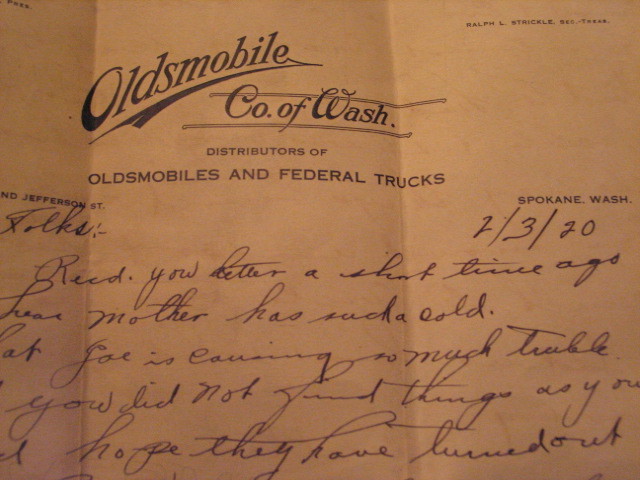 Pres.
RALPH L. STRICKLE, SEC.-TREAS.
Oldsmobile
Co. of Wash.
DISTRIBUTORS OF
OLDSMOBILES AND FEDERAL TRUCKS
ND JEFFERSON ST.
SPOKANE, WASH.
Folks:-
2/3/20
Recd. you letter a short time ago
hear mother has such a cold.
at Joe is causing so much truble.
you did not find things as you
hope they have turned out